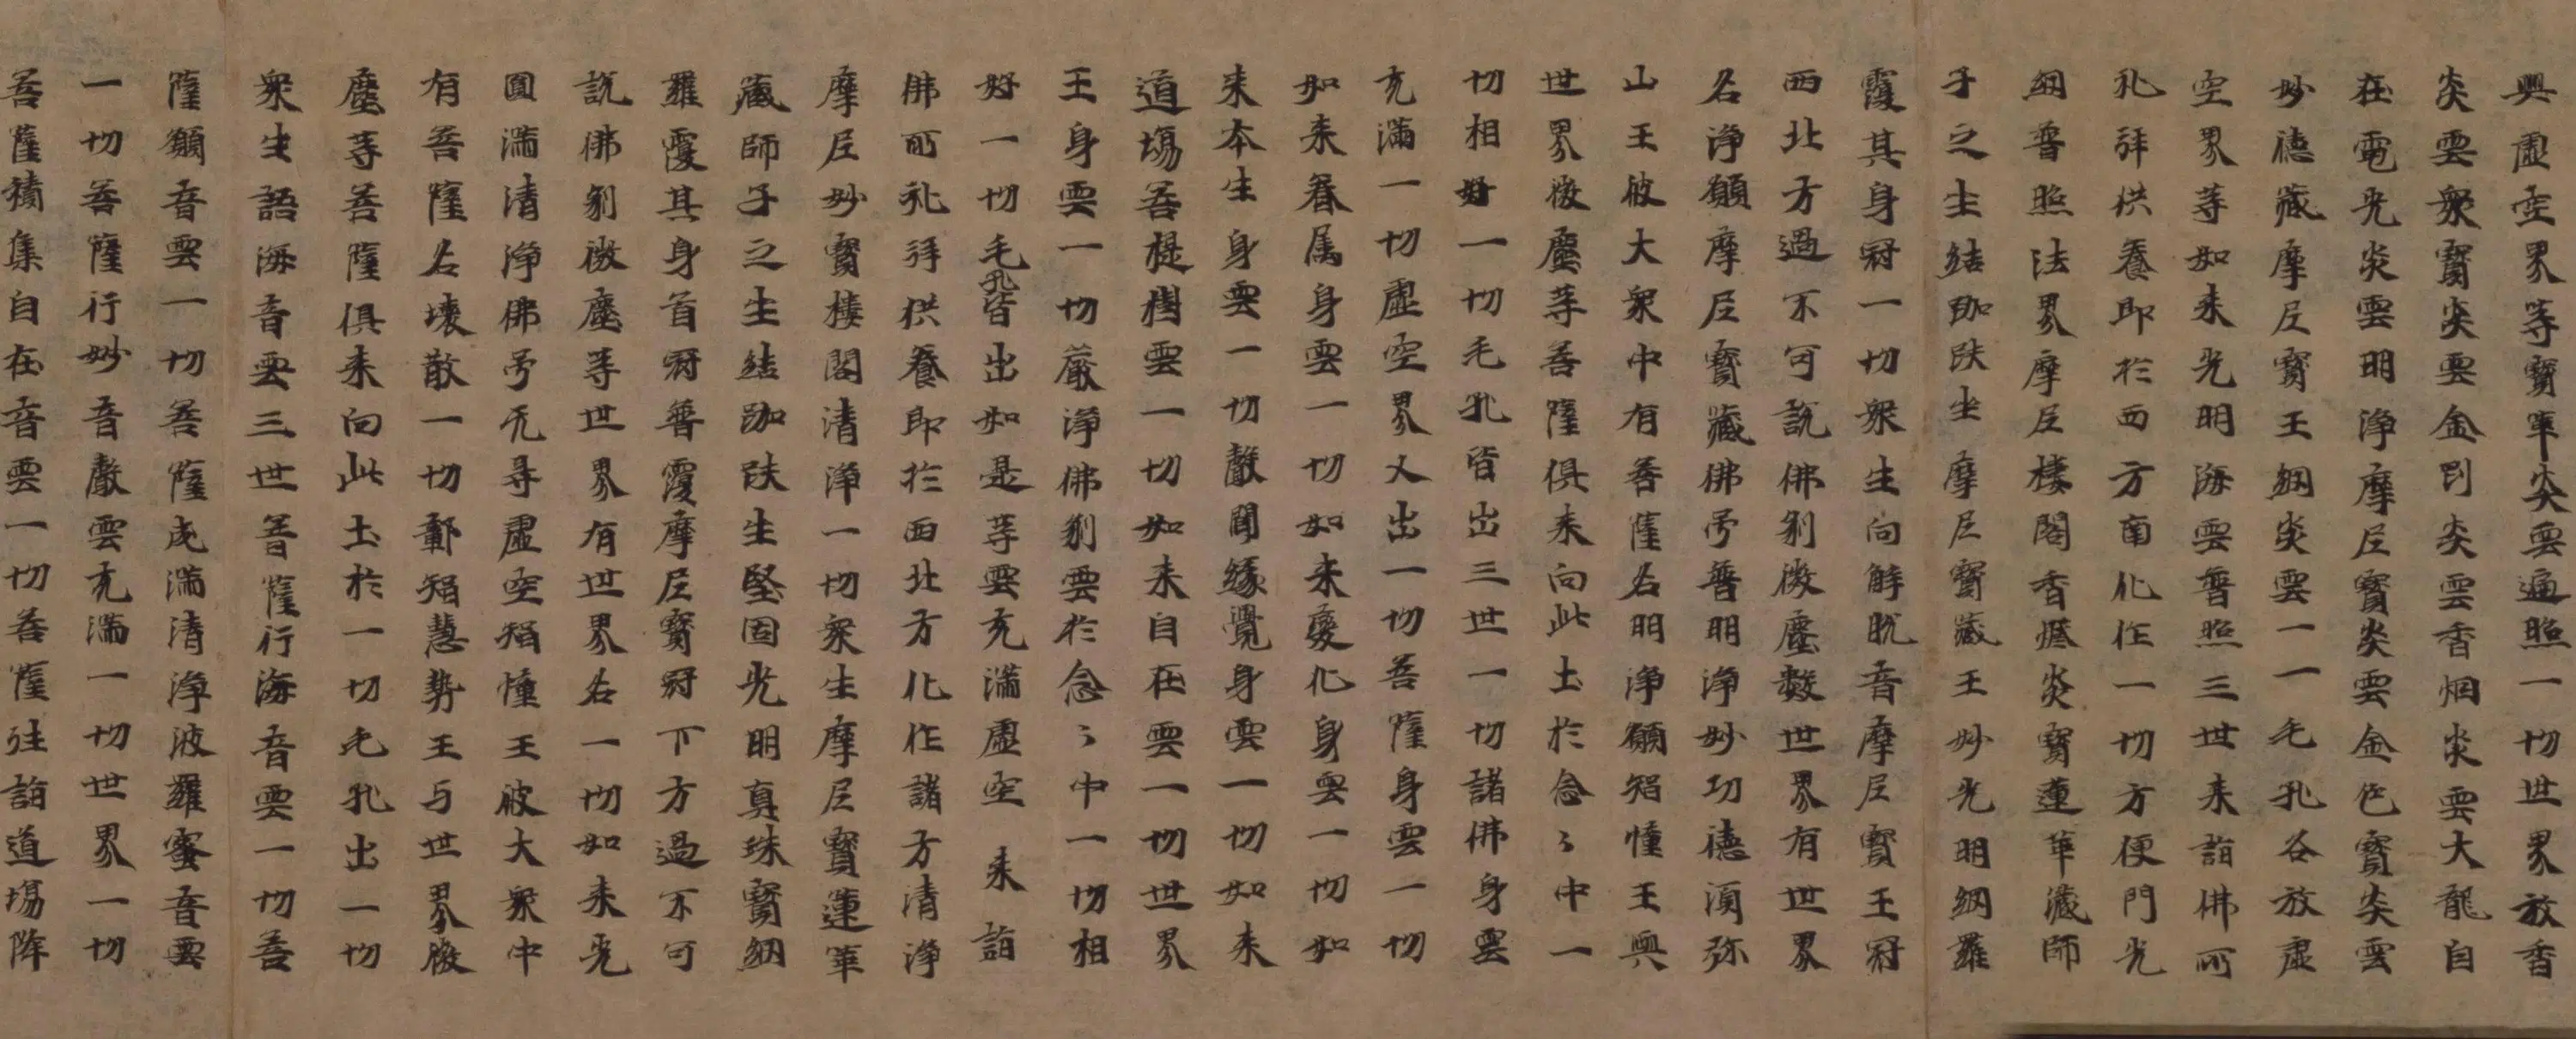 興虛空界等寶華炎雲遍照一切世界放香
炎雲衆寶炎雲金剛炎雲香烟炎雲大龍自
在電光炎雲明淨摩尼寶炎雲金色寶炎雲
妙德藏摩尼寶王網炎雲一一毛孔各放虛
空界等如来光明海雲普照三世来詣佛所
礼拜供養即於西方南化作一切方便門光
網普照法界摩尼樓閣香燈炎寶蓮華藏師
子之坐結跏趺坐摩尼寶藏王妙光明網羅
覆其身冠一切衆生向解脫音摩尼寶王冠
西北方過不可說佛剎微塵數世界有世界
名淨願摩尼寶藏佛号普明淨妙功德湏弥
山王彼大衆中有菩薩名明淨願智憧王興
世界微塵等菩薩俱来向此土於念〻中一
切相好一切毛孔皆出三世一切諸佛身雲
充滿一切虛空界又出一切菩薩身雲一切
如来眷属身雲一切如来變化身雲一切如
来本生身雲一切聲聞緣覺身雲一切如来
道場菩提樹雲一切如来自在雲一切世界
王身雲一切嚴淨佛剎雲於念〻中一切相
好一切毛孔皆出如是等雲充滿虛空来詣
佛所礼拜供養即於西北方化作諸方清淨
摩尼妙寶樓閣清淨一切衆生摩尼寶蓮華
藏師子之坐結跏趺坐堅固光明真珠寶網
羅覆其身首冠普覆摩尼寶冠下方過不可
說佛剎微塵等世界有世界名一切如来光
圓滿清淨佛号无㝵虛空智憧王彼大衆中
有菩薩名壞散一切鄣智慧勢王与世界微
塵等菩薩俱来向此土於一切毛孔出一切
衆生語海音雲三世菩薩行海音雲一切菩
薩願音雲一切菩薩成滿清淨波羅蜜音雲
一切菩薩行妙音聲雲充滿一切世界一切
菩薩積集自在音雲一切菩薩往詣道場降